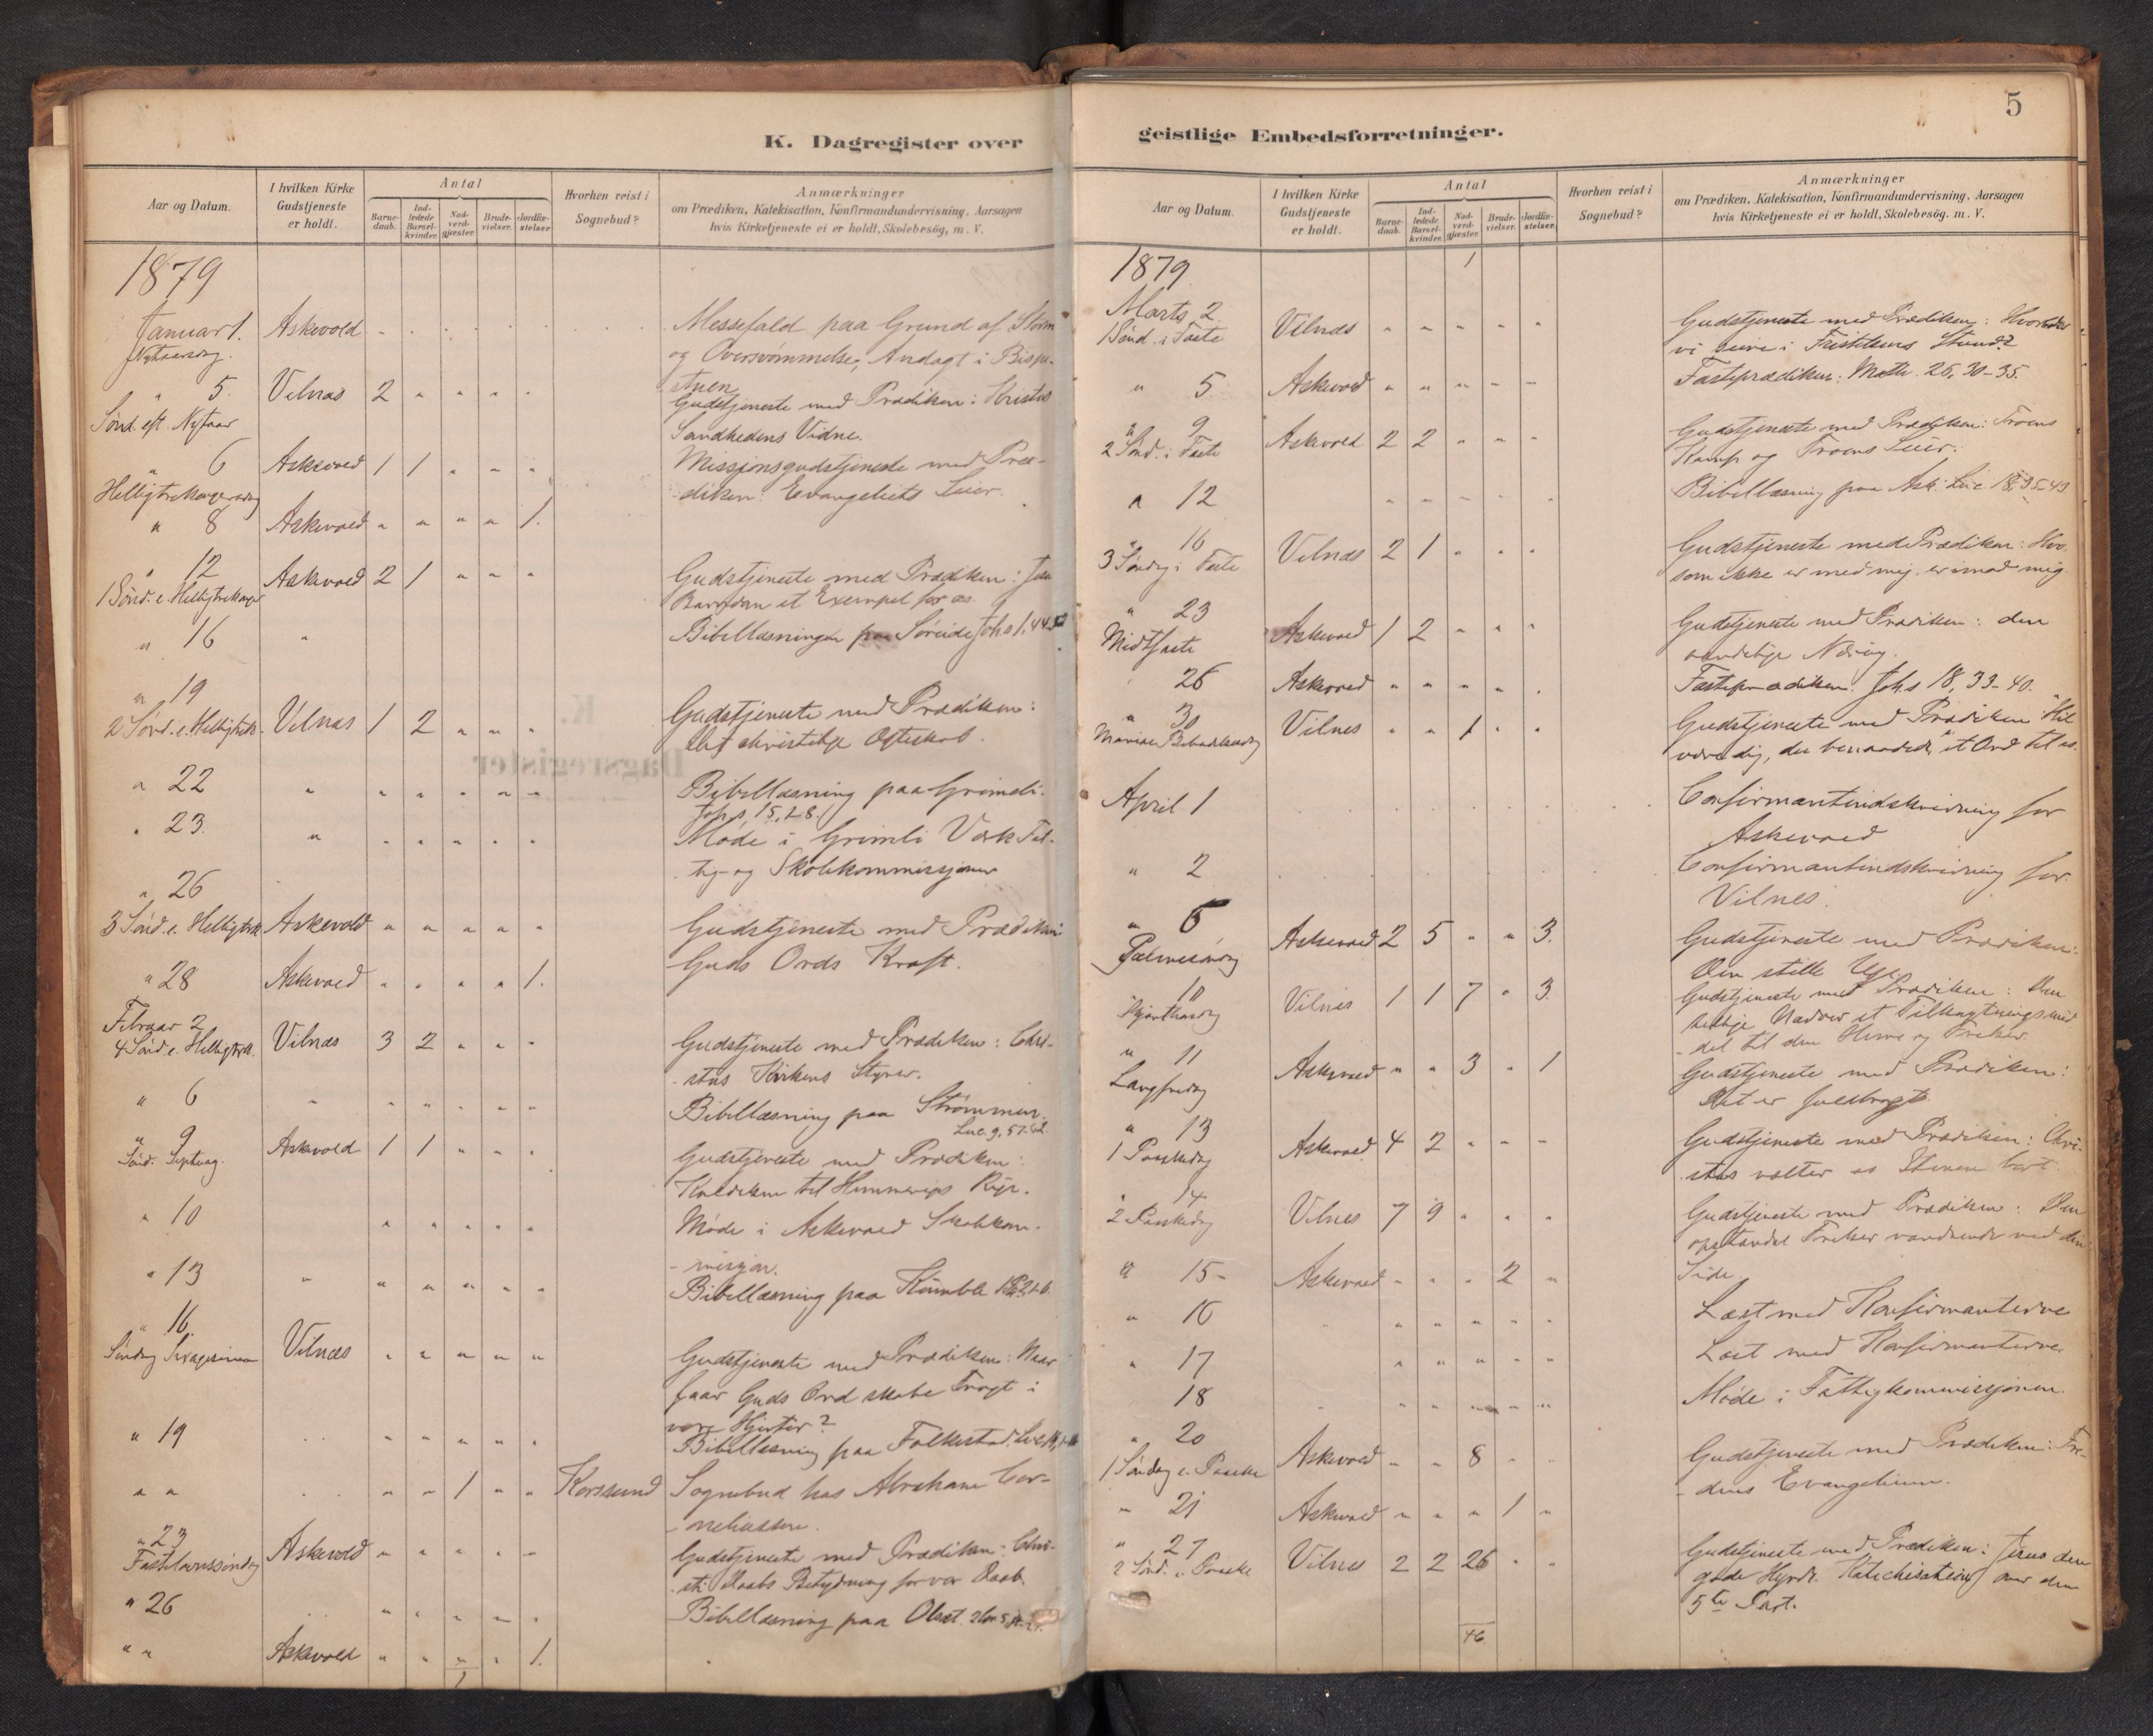 5
K. Dagregister over
Aar og Datum.
I hvilken Kirke Gudstjeneste er holdt.
Antal
Barne-daab.
Ind-ledede Barsel-kvinder.
Nad-verd-gjæster.
Brude-vielser.
Jordfæ-stelser
Hvorhen reist i Sognebud?
Anmærkninger
om Prædiken, Katekisation, Konfirmandundervisning, Aarsagen
hvis Kirketjeneste ei er holdt, Skolebesøg, m. V.
1879
Januar 1. Askevold Messefald paa Grund af Storm
Nytaarsdag. og Oversvømmelse, Andagt i Bispe-
stuen
" 5. Vilnæs 2 " " " " Gudstjeneste med Prædiken: Kristus
Sønd. eft. Nytaar Sandhedens Vidne.
" 6 Askevold 1 1 " " " Missjonsgudstjeneste med Præ-
Helligtrekongersdag diken: Evangeliets Seier.
" 8 Askevold " " " " 1.
" 12 Askevold 2 1 " " " Gudstjeneste med Prædiken: Jesu
1 Sønd. e. Helligtrekonger Barndom et Exempel for os.
" 16 " Bibellæsningen paa Søreide Johs 1,
" 19
2 Sønd. e. Helligtrek. Vilnæs 1 2 " " " Gudstjeneste med Prædiken:
Det christelige Ægteskab.
" 22 " " " " " " Bibellæsning paa Grimeli.
Johs, 15, 1-8.
" 23. " " " " " " Møde i Grimeli
og Skolekommissjonen
" 26
3 Sønd. e. Helligtrek Askevold " " " " " Gudstjeneste med Prædiken
Guds Ords Kraft.
" 28 Askevold " " " " 1.
Februar 2
4 Sønd. e. Helligtrek. Vilnæs 3 2 " " " Gudstjeneste med Prædiken: Chri-
stus Kirkens Styrer.
" 6 " " " " " " Bibellæsning paa Strømmen.
Luc. 9, 57-62.
" 9 Askevold 1 1 " " " Gudstjeneste med Prædiken:
Sønd. Septuag. Kaldelsen til Himmeriges Rige.
" 10 " " " " " Møde i Askevold Skolekom-
missjon.
" 13 " " " " " " Bibellæsning paa
" 16.
Søndag Sexagesima Vilnæs " " " " " Gudstjeneste med Prædiken: Naar
faar Guds Ord skabe Frugt i
vore Hjerter?
" 19 " " " " " Bibellæsning paa Folkestad.
" " " " 1 " " Korssund Sognebud hos Abraham Cor-
neliussen.
" 23
Fastelavnssøndag Askevold " " " " " Gudstjeneste med Prædiken: Chri-
sti Daabs Betydning for vor Daab.
" 26 " " " " " Bibellæsning paa
" " Askevold " " " " 1.
1
geistlige Embedsforretninger.
Aar og Datum.
I hvilken Kirke Gudstjeneste er holdt.
Antal
Barne-daab.
Ind-ledede Barsel-kvinder.
Nad-verd-gjæster.
Brude-vielser.
Jordfæ-stelser.
Hvorhen reist i Sognebud?
Anmærkninger
om Prædiken, Katekisation, Konfirmandundervisning, Aarsagen
hvis Kirketjeneste ei er holdt, Skolebesøg. m. V.
1879 1
Marts 2
1 Sønd. i Faste Vilnæs " " " " " Gudstjeneste med Prædiken: Hvorledes
vi seire i Fristelsens Stund?
" 5 Askevold " " " " " Fasteprædiken: Matth. 26, 30-35.
" 9
2 Sønd. i Faste Askevold 2 2 " " " Gudstjeneste med Prædiken: Troens
Kamp og Troens Seier.
" 12 " " " " " Bibellæsning paa Ask. Luc 18, 35-43
" 16
3 Søndag i Faste Vilnæs 2 1 " " " Gudstjeneste med Prædiken: Hvo
som ikke er med mig, er imod mig.
" 23
Midtfaste Askevold 1 2 " " " Gudstjeneste med Prædiken: den
aandelige Næring.
" 26 Askevold " " " " " Fasteprædiken: Johs 18, 33-40.
" 30
Mariæ Bebudelsesdag Vilnes " " 1 " " Gudstjeneste med Prædiken "Hil
være dig, du benaadede", et Ord til os.
April 1 Confirmantindskrivning for
Askevold
" 2 Confirmantindskrivning for
Vilnes.
" 6
Palmesøndag Askevold 2 5 " " 3. Gudstjeneste med Prædiken:
Den stille Uge
" 10
Skjærthorsdag Vilnes 1 1 7 " 3. Gudstjeneste med Prædiken: Den
hellige Nadver et
del til den Herre og Frelser
" 11
Langfredag Askevold " " 3 " 1 Gudstjeneste med Prædiken:
Det er fuldbragt.
" 13
1 Paaskedag Askevold 4 2 " " " Gudstjeneste med Prædiken: Chri-
stus vælter os Stenen bort.
" 14
2 Paaskedag Vilnes 7 9 " " " Gudstjeneste med Prædiken: Den
opstandne Frelser vandrende ved din
Side.
" 15 Askevold " " " 2 "
" 16 " " " " " Læst med Konfirmanterne
" 17 " " " " " Læst med Konfirmanterne
18 " " " " " Møde i Fattigkommissjonen.
" 20
1 Søndag e. Paaske Askevold " " 8 " " Gudstjeneste med Prædiken: Fre-
dens Evangelium.
" 21 Askevold " " " 1 "
" 27
2 Sønd. e. Paaske Vilnes 2 2 26 " " Gudstjeneste med Prædiken: Jesus den
gode Hyrde. Katechisation over den
5te Part.
46